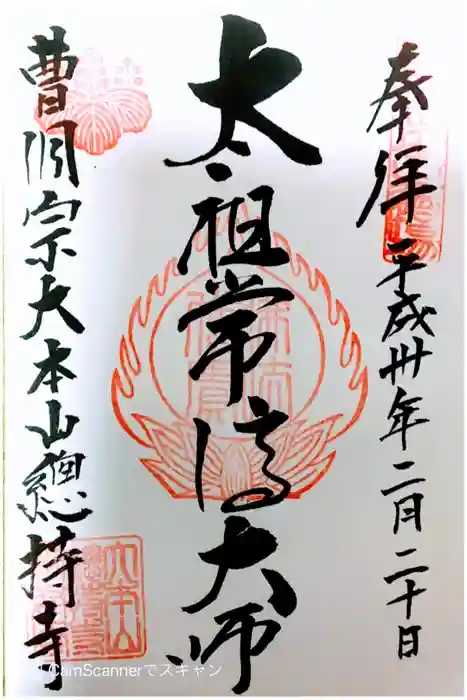 奉拝 平成卅年二月二十日
太祖常済大師
曹洞宗大本山總持寺
CamScannerでスキャン